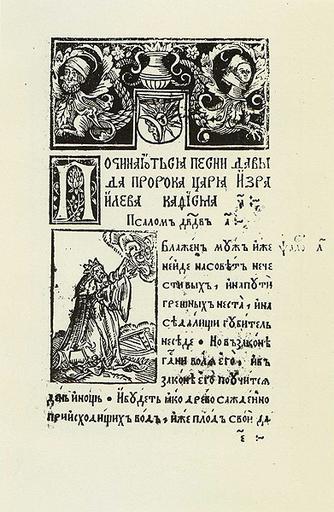 Починаютьсѧ песни давы
да пророка царѧ Изра
илева кафисма а҃ :~
Ѱаломъ дв҃дв а҃ :~
Блаженъ мужъ иже
неиде насовѣтъ нече
стивыхъ , инапути
грешныхъ неста , ина
седалищи губитель
неседе • Но въ законѣ
гн҃и волѧ его , ивъ
законе его поучитсѧ
день инощь • Ибудеть ꙗко древо сажденно
приисходищихъ водъ , иже плод свои да